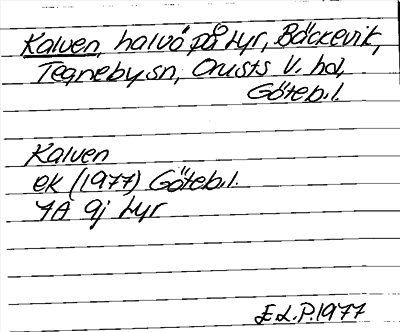 Kalven, halvö på Lyr, Bäckevik,
Tegneby sn, Orusts V. hd,
Göteb. l.
Kalven
ek (1977) Göteb. l.
7A 9j Lyr
E.L.P. 1977